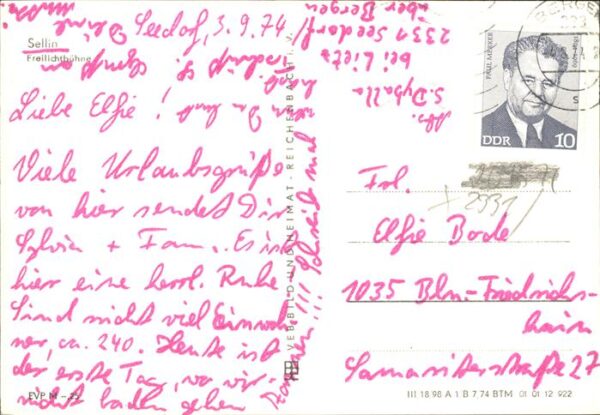 Sellin
Freilichtbühne
Seedorf, 3.9.74
Liebe Elfie!
Viele Urlaubsgrüße
von hier sendet Dir
Sylvia + Fam. Es ist
hier eine herrl. Ruhe
Sind nicht viel Einwoh-
ner, ca. 240. Heute ist
der erste Tag, wo wir
nicht baden gehen
!!! Schreib mal
EVP M
VEB BILD UND HEIMAT REICHENBACH I. V.
Abs.
S. Dyballa
bei Lietz
2331 Seedorf
über Bergen
BERGEN
PAUL MERKER
DDR 10
Frl.
2331
Elfie Bode
1035 Bln.-Friedrichs-
hain
Samariterstraße 27
III 18 98 A 1 B 7 74 BTM 01 01 12 922